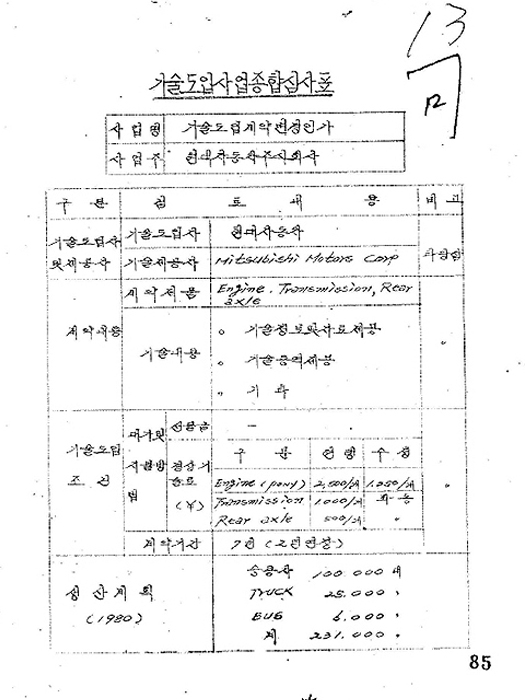 13
기술도입사업종합심사표
사업명 기술도입계약변경인가
사업주 현대자동차주식회사
구분 검토내용 비고
기술도입사 및 제공사 기술도입사 현대자동차
기술제공사 Mitsubishi Motors Corp 타당함
계약내용 계약제품 Engine, Transmission, Rear axle
기술내용 ○ 기술정보및자료제공 〃
○ 기술용역제공
○ 기타
기술도입조건 대가및지불방법 선불금 —
경상기술료 (¥) 구분 현행 수정
Engine (pony) 2,500/대 1,250/대 〃
Transmission 1,000/대
Rear axle 500/대 〃
계약기간 7년 (2년연장)
생산계획 (1980) 승용차 100.000 대
TRUCK 25.000 〃
BUS 6.000 〃
계 231.000 〃
85